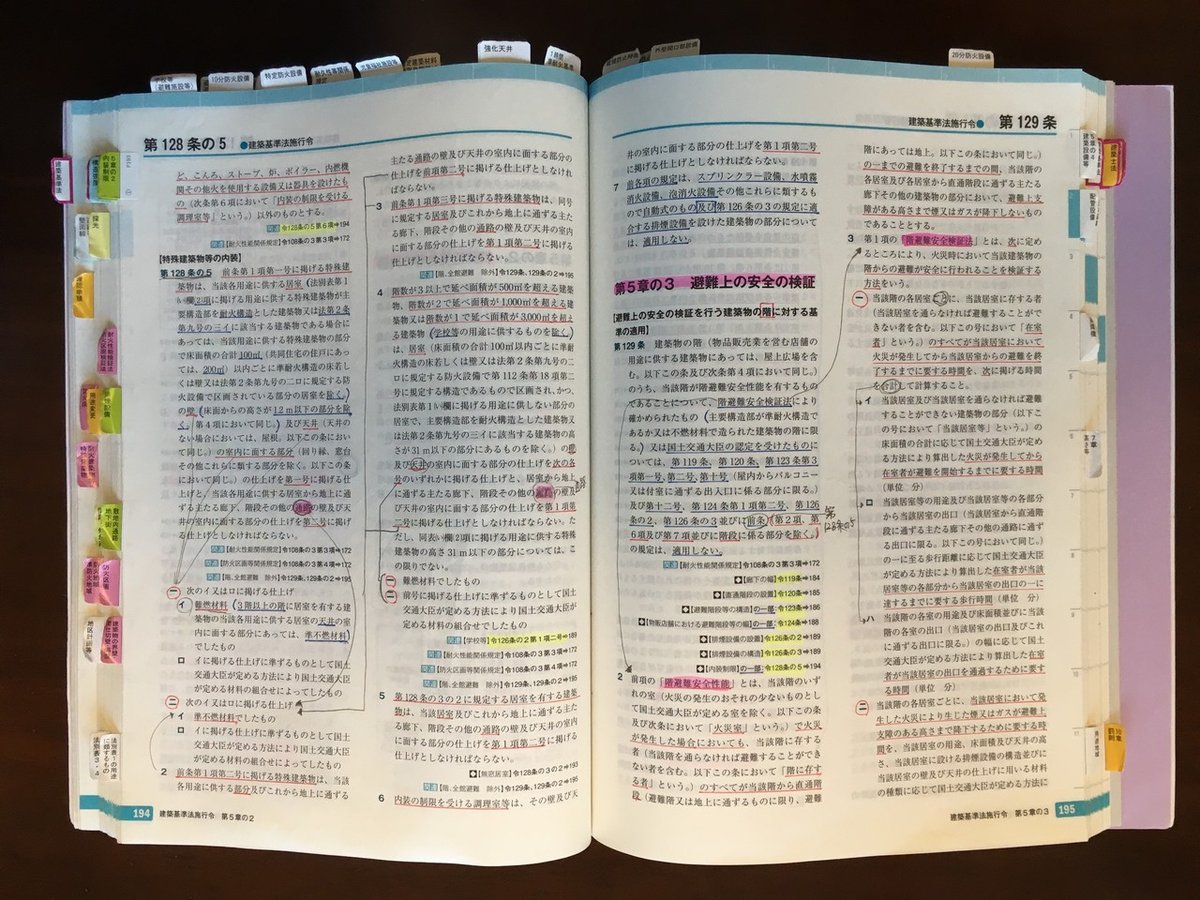 強化天井
特定防火設備
20分防火設備
第128条の5 ●建築基準法施行令
ど、こんろ、ストーブ、炉、ボイラー、内燃機
関その他火を使用する設備又は器具を設けたも
の(次条第6項において「内装の制限を受ける
調理室等」という。)以外のものとする。
令128条の5第6項➜194
関連【耐火性能関係規定】令108条の3第3項➜172
【特殊建築物等の内装】
第128条の5 前条第1項第一号に掲げる特殊建
築物は、当該各用途に供する居室(法別表第1
い欄2項に掲げる用途に供する特殊建築物が主
要構造部を耐火構造とした建築物又は法第2条
第九号の三イに該当する建築物である場合に
あっては、当該用途に供する特殊建築物の部分
で床面積の合計100㎡(共同住宅の住戸にあっ
ては、200㎡)以内ごとに準耐火構造の床若し
くは壁又は法第2条第九号の二ロに規定する防
火設備で区画されている部分の居室を除く。)
の壁(床面からの高さが1.2m以下の部分を除
く。第4項において同じ。)及び天井(天井の
ない場合においては、屋根。以下この条におい
て同じ。)の室内に面する部分(回り縁、窓台
その他これらに類する部分を除く。以下この条
において同じ。)の仕上げを第一号に掲げる仕
上げと、当該各用途に供する居室から地上に通
ずる主たる廊下、階段その他の通路の壁及び天
井の室内に面する部分の仕上げを第二号に掲げ
る仕上げとしなければならない。
関連【耐火性能関係規定】令108条の3第3項➜172
関連【防火区画等関係規定】令108条の3第4項➜172
関連【階、全館避難 除外】令129条、129条の2➜195
一 次のイ又はロに掲げる仕上げ
イ 難燃材料(3階以上の階に居室を有する建
築物の当該各用途に供する居室の天井の室
内に面する部分にあっては、準不燃材料)
でしたもの
ロ イに掲げる仕上げに準ずるものとして国土
交通大臣が定める方法により国土交通大臣
が定める材料の組合せによってしたもの
二 次のイ又はロに掲げる仕上げ
イ 準不燃材料でしたもの
ロ イに掲げる仕上げに準ずるものとして国土
交通大臣が定める方法により国土交通大臣
が定める材料の組合せによってしたもの
2 前条第1項第二号に掲げる特殊建築物は、当該
各用途に供する部分及びこれから地上に通ずる
主たる通路の壁及び天井の室内に面する部分の
仕上げを前項第二号に掲げる仕上げとしなけれ
ばならない。
3 前条第1項第三号に掲げる特殊建築物は、同号
に規定する居室及びこれから地上に通ずる主た
る廊下、階段その他の通路の壁及び天井の室内
に面する部分の仕上げを第1項第二号に掲げる
仕上げとしなければならない。
関連【階、全館避難 除外】令129条、129条の2➜195
4 階数が3以上で延べ面積が500㎡を超える建築
物、階数が2で延べ面積が1,000㎡を超える建
築物又は階数が1で延べ面積が3,000㎡を超え
る建築物(学校等の用途に供するものを除く。)
は、居室(床面積の合計100㎡以内ごとに準耐
火構造の床若しくは壁又は法第2条第九号の二
ロに規定する防火設備で第112条第18項第二
号に規定する構造であるもので区画され、かつ、
法別表第1い欄に掲げる用途に供しない部分の
居室で、主要構造部を耐火構造とした建築物又
は法第2条第九号の三イに該当する建築物の高
さが31m以下の部分にあるものを除く。)の壁
及び天井の室内に面する部分の仕上げを次の各
号のいずれかに掲げる仕上げと、居室から地上
に通ずる主たる廊下、階段その他の通路の壁及
び天井の室内に面する部分の仕上げを第1項第
二号に掲げる仕上げとしなければならない。た
だし、同表い欄2項に掲げる用途に供する特殊
建築物の高さ31m以下の部分については、こ
の限りでない。
一 難燃材料でしたもの
二 前号に掲げる仕上げに準ずるものとして国土
交通大臣が定める方法により国土交通大臣が
定める材料の組合せでしたもの
関連【学校等】令126条の2第1項二号➜189
関連【耐火性能関係規定】令108条の3第3項➜172
関連【防火区画等関係規定】令108条の3第4項➜172
関連【階、全館避難 除外】令129条、129条の2➜195
5 第128条の3の2に規定する居室を有する建築
物は、当該居室及びこれから地上に通ずる主た
る廊下、階段その他の通路の壁及び天井の室内
に面する部分の仕上げを第1項第二号に掲げる
仕上げとしなければならない。
【無窓居室】令128条の3の2➜193
関連【階、全館避難 除外】令129条、129条の2➜195
6 内装の制限を受ける調理室等は、その壁及び天
194 建築基準法施行令 第5章の2
建築基準法施行令● 第129条
井の室内に面する部分の仕上げを第1項第二号
に掲げる仕上げとしなければならない。
7 前各項の規定は、スプリンクラー設備、水噴霧
消火設備、泡消火設備その他これらに類するもの
で自動式のもの及び第126条の3の規定に適
合する排煙設備を設けた建築物の部分について
は、適用しない。
第5章の3 避難上の安全の検証
【避難上の安全の検証を行う建築物の階に対する基
準の適用】
第129条 建築物の階(物品販売業を営む店舗の
用途に供する建築物にあっては、屋上広場を含
む。以下この条及び次条第4項において同じ。)
のうち、当該階が階避難安全性能を有するもの
であることについて、階避難安全検証法により
確かめられたもの(主要構造部が準耐火構造で
あるか又は不燃材料で造られた建築物の階に限
る。)又は国土交通大臣の認定を受けたものに
ついては、第119条、第120条、第123条第3
項第一号、第二号、第十号(屋内からバルコニー
又は付室に通ずる出入口に係る部分に限る。)
及び第十二号、第124条第1項第二号、第126
条の2、第126条の3並びに前条(第2項、第
6項及び第7項並びに階段に係る部分を除く。)
の規定は、適用しない。
第128条の5
関連【耐火性能関係規定】令108条の3第3項➜172
【廊下の幅】令119条➜184
【直通階段の設置】令120条➜185
【避難階段等の構造】の一部:令123条➜186
【物販店舗における避難階段等の幅】の一部:令124条➜188
【排煙設備の設置】令126条の2➜188
【排煙設備の構造】令126条の3➜189
【内装制限】の一部:令128条の5➜194
2 前項の「階避難安全性能」とは、当該階のいず
れの室(火災の発生のおそれの少ないものとし
て国土交通大臣が定める室を除く。以下この条
及び次条において「火災室」という。)で火災
が発生した場合においても、当該階に存する者
(当該階を通らなければ避難することができ
ない者を含む。以下この条において「階に存す
る者」という。)のすべてが当該階から直通階
段(避難階又は地上に通ずるものに限り、避難
階にあっては地上。以下この条において同じ。)
の一までの避難を終了するまでの間、当該階の
各居室及び各居室から直通階段に通ずる主たる
廊下その他の建築物の部分において、避難上支
障がある高さまで煙又はガスが降下しないもの
であることとする。
3 第1項の「階避難安全検証法」とは、次に定め
るところにより、火災時において当該建築物の
階からの避難が安全に行われることを検証する
方法をいう。
一 当該階の各居室ごとに、当該居室に存する者
(当該居室を通らなければ避難することがで
きない者を含む。以下この号において「在室
者」という。)のすべてが当該居室において
火災が発生してから当該居室からの避難を終
了するまでに要する時間を、次に掲げる時間
を合計して計算すること。
イ 当該居室及び当該居室を通らなければ避難
することができない建築物の部分(以下こ
の号において「当該居室等」という。)の
の床面積の合計に応じて国土交通大臣が定め
る方法により算出した火災が発生してから
在室者が避難を開始するまでに要する時間
(単位 分)
ロ 当該居室等の用途及び当該居室等の各部分
から当該居室の出口(当該居室から直通階
段に通ずる主たる廊下その他の通路に通ず
る出口に限る。以下この号において同じ。)
の一に至る歩行距離に応じて国土交通大臣
が定める方法により算出した在室者が当該
居室等の各部分から当該居室の出口の一に
達するまでに要する歩行時間(単位 分)
ハ 当該居室の用途及び床面積並びに当該
階の各室の出口(当該居室の出口及びこれ
に通ずる出口に限る。)の幅に応じて国土
交通大臣が定める方法により算出した在室
者が当該居室の出口を通過するために要す
る時間(単位 分)
二 当該階の各居室ごとに、当該居室において発
生した火災により生じた煙又はガスが避難上
支障のある高さまで降下するために要する時
間を、当該居室の用途、床面積及び天井の高
さ、当該居室に設ける排煙設備の構造並びに
当該居室の壁及び天井の仕上げに用いる材料
の種類に応じて国土交通大臣が定める方法に
建築基準法施行令 第5章の3 195